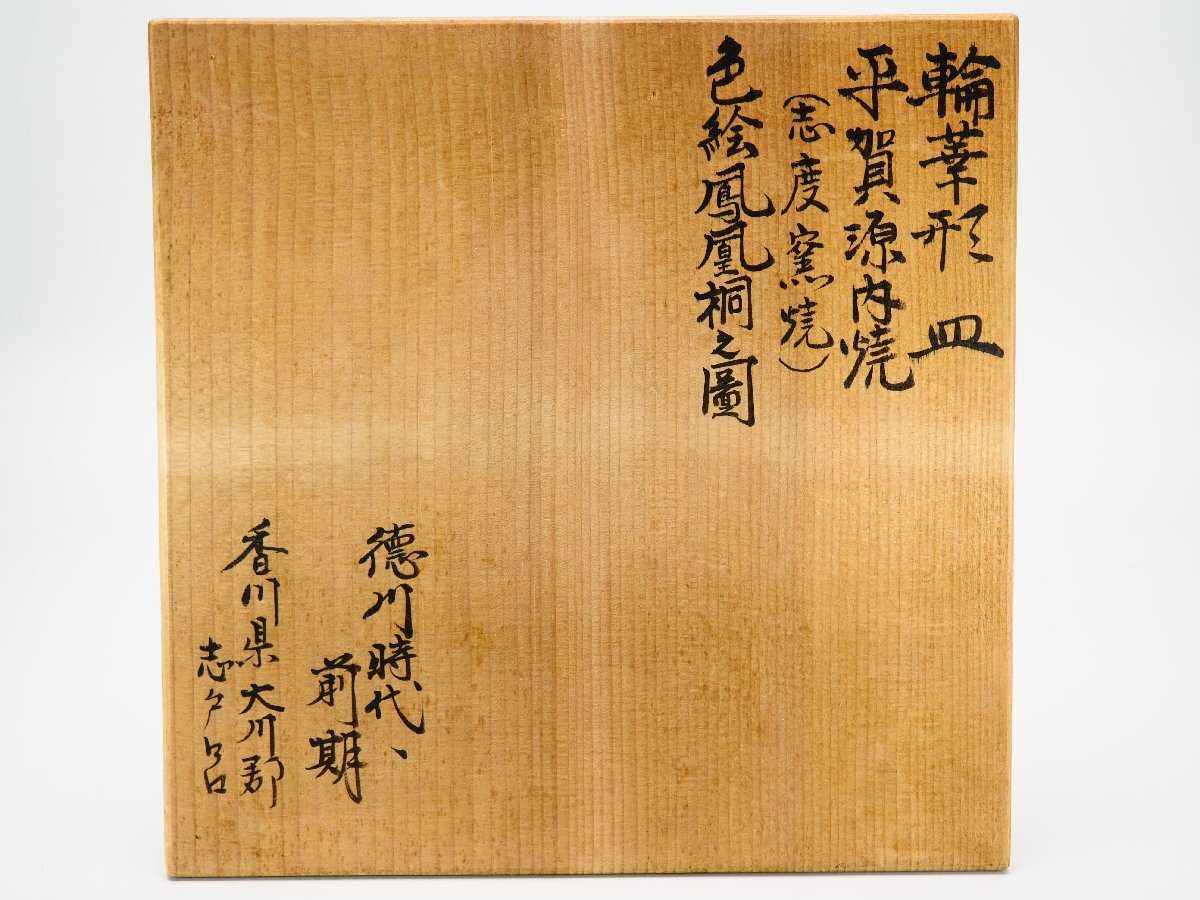 輪華形 皿
平賀源内焼
(志度窯焼)
色絵鳳凰桐之圖
徳川時代、
前期
香川県大川郡
志